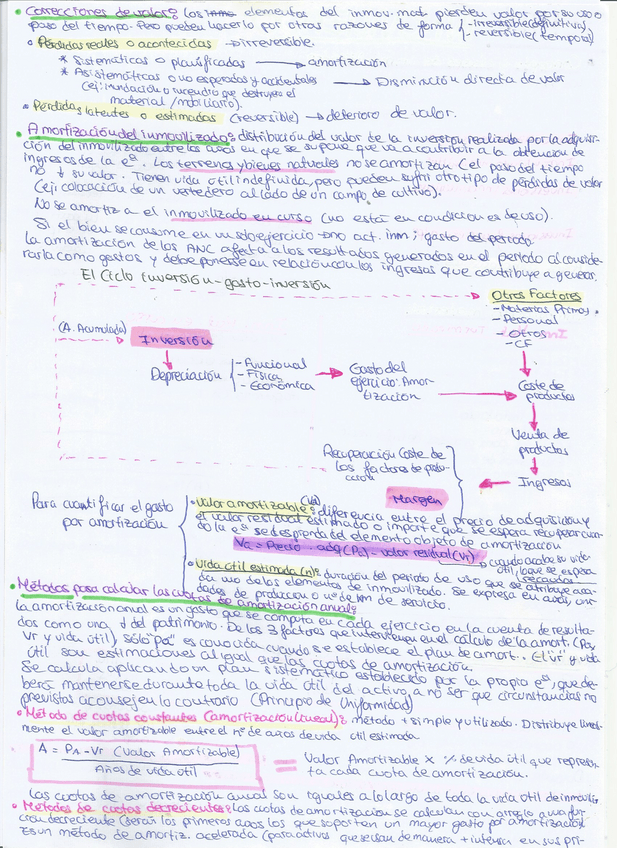 • Correcciones de valor: los elementos del inmov. mat. pierden valor por su uso o
paso del tiempo. Pero pueden hacerlo por otras razones de forma { - irreversible (definitivos)
- reversible (temporal)
• Pérdidas reales o acontecidas → irreversible.
* Sistemáticas o planificadas → amortización
* Asistemáticas o no esperadas y accidentales → Disminución directa de valor
(ej: inundación o incendio que destruyen el
material / mobiliario).
• Pérdidas latentes o estimadas (reversible) → deterioro de valor.
• Amortización del inmovilizado: distribución del valor de la inversión realizada por la adquisi-
ción del inmovilizado entre los años en que se supone que va a contribuir a la obtención de
ingresos de la eª. Los terrenos y bienes naturales no se amortizan (el paso del tiempo
no ↓ su valor. Tienen vida útil indefinida, pero pueden sufrir otro tipo de pérdidas de valor
(ej: colocación de un vertedero al lado de un campo de cultivo).
No se amortiza el inmovilizado en curso (no está en condiciones de uso).
Si el bien se consume en un solo ejercicio → no act. inm; gasto del periodo
la amortización de los ANC afecta a los resultados generados en el periodo al conside-
rarla como gastos y debe ponerse en relación con los ingresos que contribuye a generar.
El Ciclo inversión-gasto-inversión
Otros Factores
- Materias Primas
- Personal
- Otros
- CF
(A. Acumulada)
Inversión
Depreciación { - Funcional
- Física
- Económica
→ Gasto del
ejercicio: Amor-
tización
→ Coste de
productos
Venta de
productos
Ingresos
Recuperación Coste de
los factores de produ-
cción
Margen
Para cuantificar el gasto
por amortización
• Valor amortizable (Va): diferencia entre el precio de adquisición y
el valor residual estimado o importe que se espera recuperar cuan-
do la eª se desprenda del elemento objeto de amortización
Va = Precio adq (Pa) - valor residual (Vr) → cuando acabe su vida
útil, lo que se espera
recaudar
• Vida útil estimada (n): duración del periodo de uso que se atribuye a ca-
da uno de los elementos de inmovilizado. Se expresa en años, uni-
dades de producción o nº de km de servicio.
• Métodos para calcular las cuotas de amortización anual:
la amortización anual es un gasto que se computa en cada ejercicio en la cuenta de resulta-
dos como una ↓ del patrimonio. De los 3 factores que intervienen en el cálculo de la amort. (Pa,
Vr y vida útil) sólo "Pa" es conocida cuando se establece el plan de amort.. El "Vr" y vida
útil son estimaciones al igual que las cuotas de amortización.
Se calcula aplicando un plan sistemático establecido por la propia eª, que de-
berá mantenerse durante toda la vida útil del activo, a no ser que circunstancias no
previstas aconsejen lo contrario (Principio de Uniformidad)
• Método de cuotas constantes (amortización lineal): método + simple y utilizado. Distribuye lineal-
mente el valor amortizable entre el nº de años de vida útil estimada.
A = PA - Vr (Valor Amortizable)
Años de vida útil
= Valor Amortizable x % de vida útil que represen-
ta cada cuota de amortización.
Las cuotas de amortización anual son iguales a lo largo de toda la vida útil de inmoviliz.
• Métodos de cuotas decrecientes: las cuotas de amortización se calculan con arreglo a una fun-
ción decreciente (serán los primeros años los que soporten un mayor gasto por amortización)
Es un método de amortiz. acelerada (para activos que se usan de manera + intensa en sus pri-